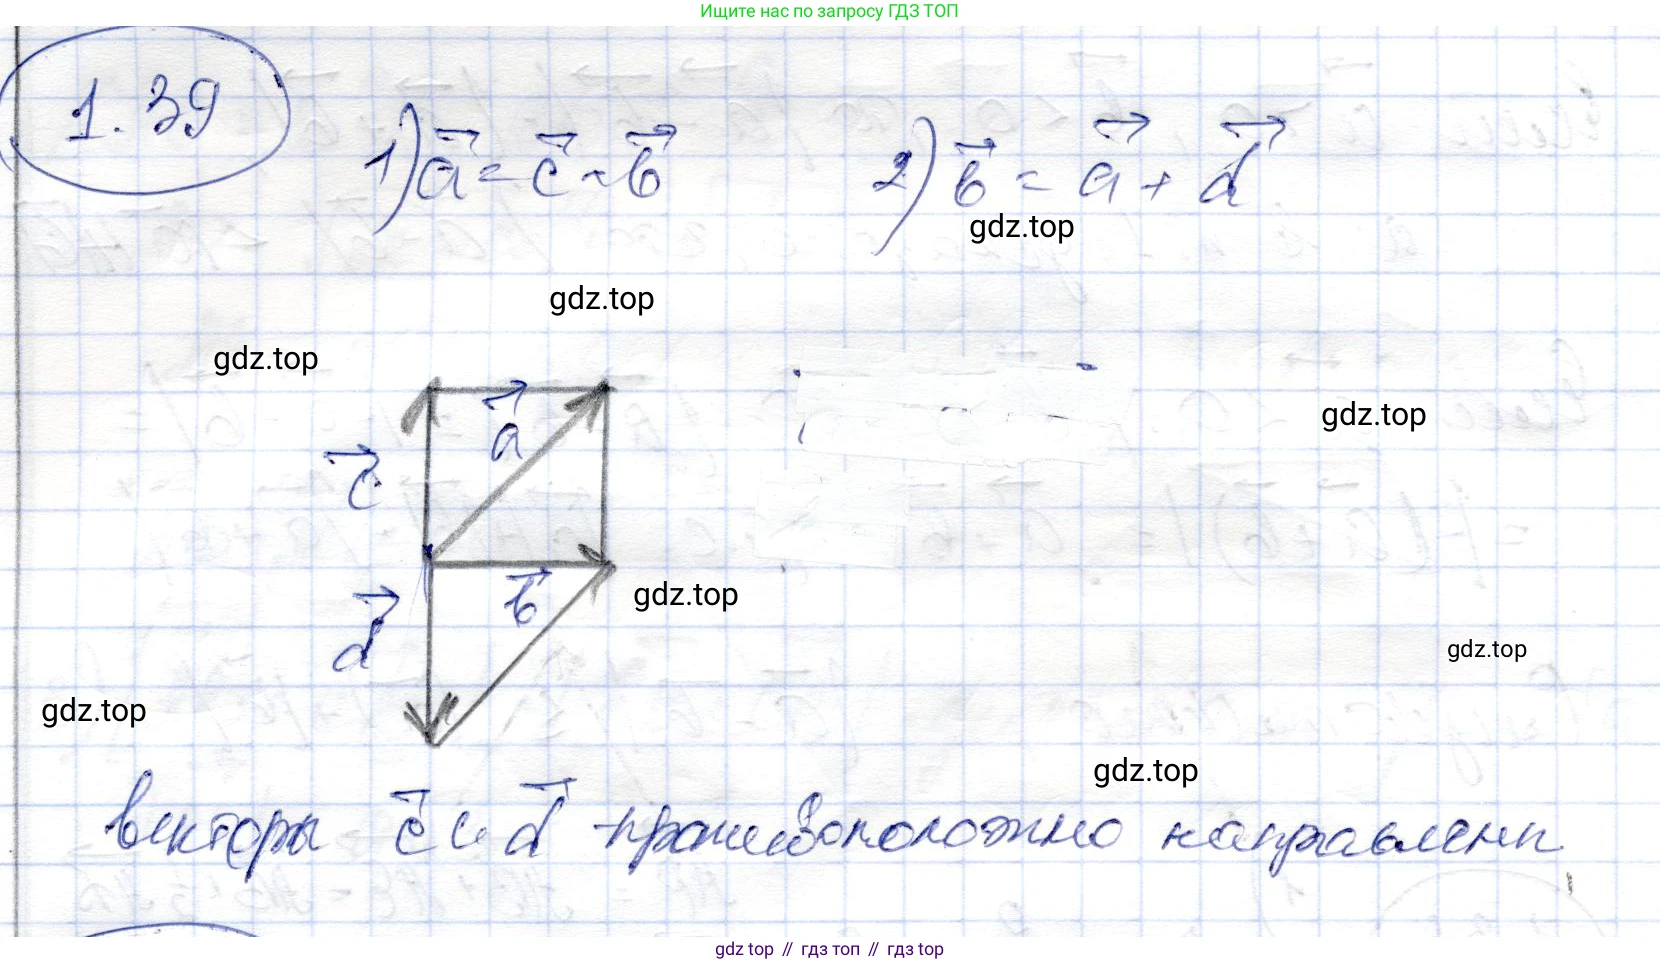 Ищите нас по запросу ГДЗ ТОП
1.39
1) a⃗ = c⃗ - b⃗
2) b⃗ = a⃗ + d⃗
gdz.top
gdz.top
gdz.top
a⃗
gdz.top
c⃗
b⃗
gdz.top
d⃗
gdz.top
gdz.top
gdz.top
векторы c⃗ и d⃗ - противоположно направлены.
gdz top // гдз топ // гдз top